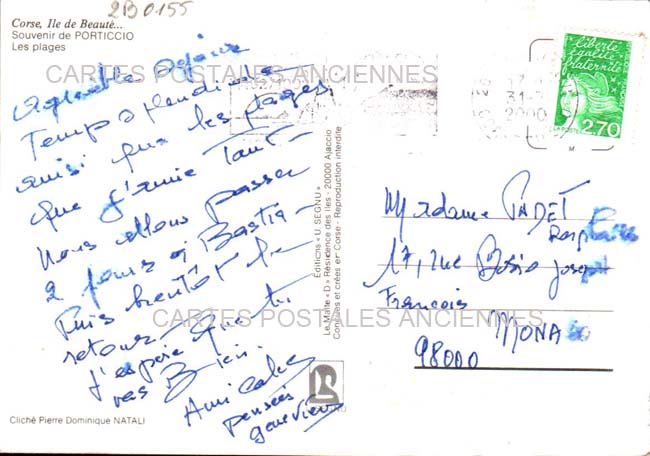 2B0155
Corse, Ile de Beauté...
Souvenir de PORTICCIO
Les plages
CARTES POSTALES ANCIENNES
Agréable séjour
Temps splendide
ainsi que les plages
que j'aime tant-
Nous allons passer
2 jours à Bastia-
Puis bientôt le
retour-
J'espère que tu
vas Bien.
Amicales
pensées
Geneviève
Cliché Pierre Dominique NATALI
Editions « U. SEGNU »
Le Malte « D » Résidence des Iles - 20000 Ajaccio
Conçues et créées en Corse - Reproduction interdite
17
31-
2000
liberté
égalité
fraternité
LA POSTE
2,70
M
Madame PADET
17, rue Bosio Joseph
François
MONACO
98000
CARTES POSTALES ANCIENNES